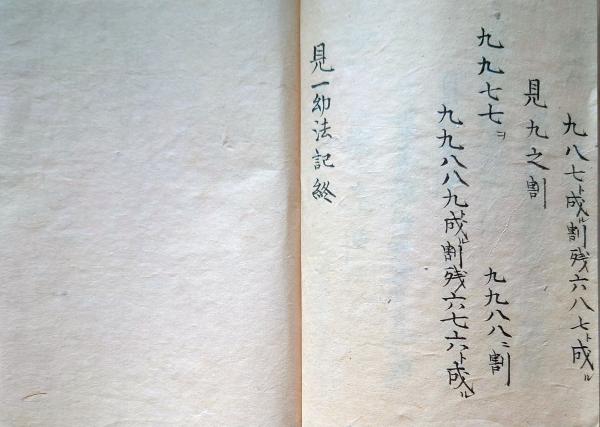 九八七ト成ル割残六八七ト成ル
見九之割
九九七七ヲ 九九八八ニ割
九九八八九ト成ル割残六七六八ト成ル
見一幼法記終